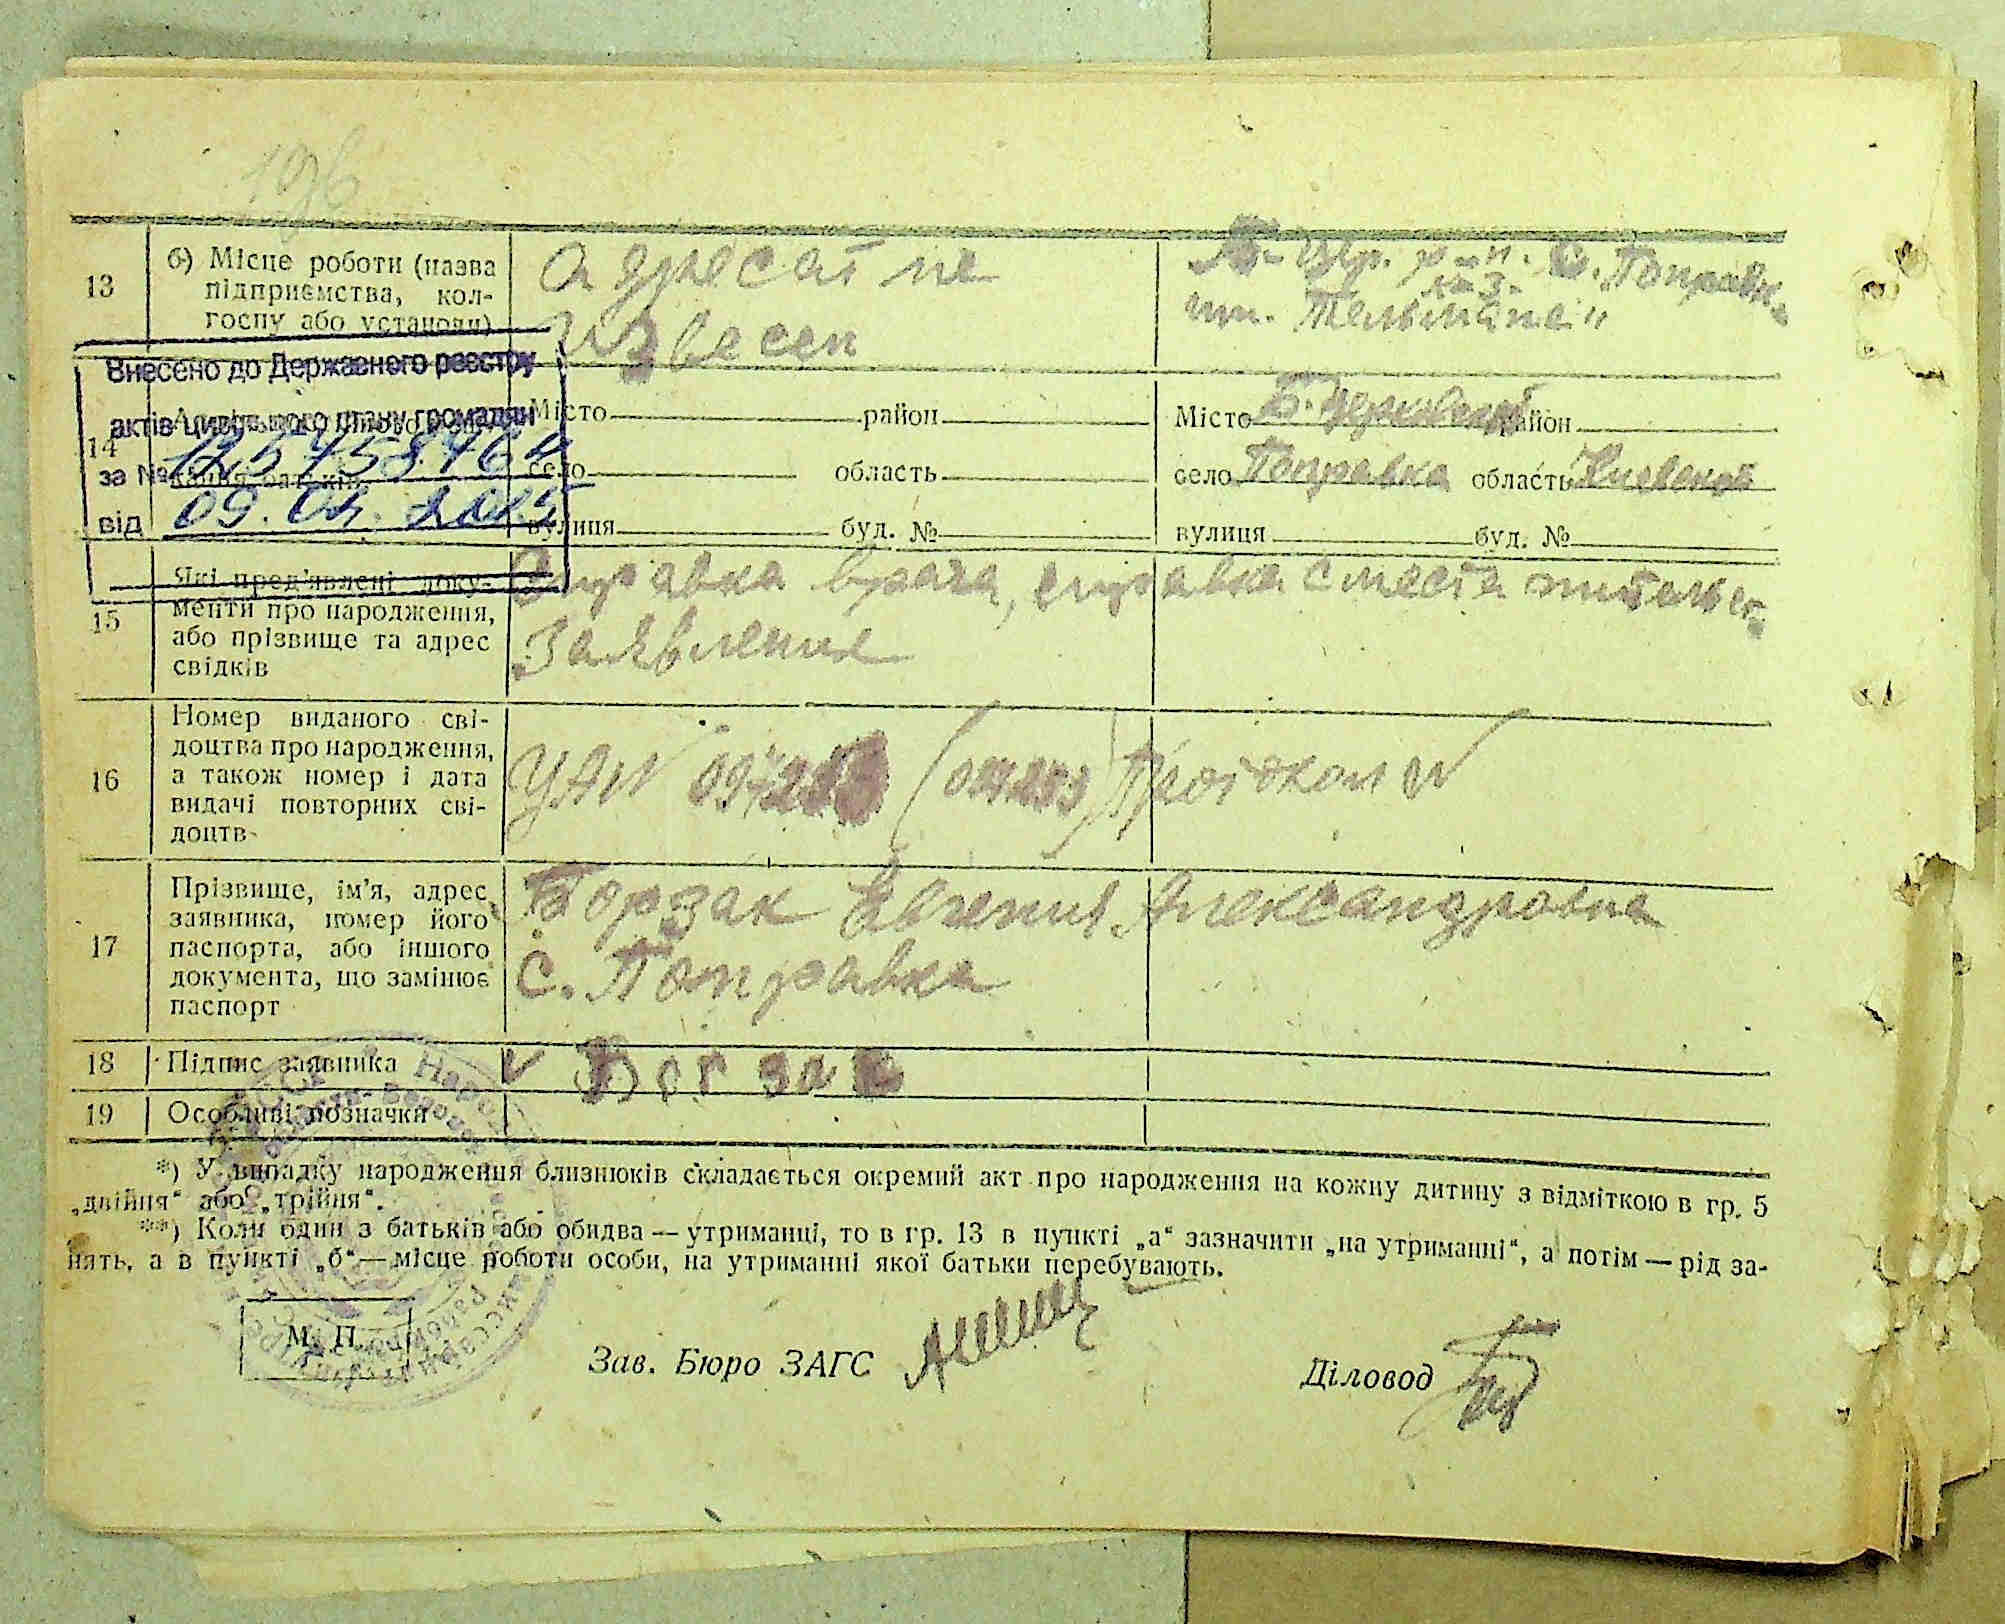 196
13
б) Місце роботи (назва
підприємства, кол-
госпу або установи)
адресат не
известен
Б-Цер. р-н. с. Поправк.
к-з
им. Тельмана"
Внесено до Державного реєстру
актів цивільного стану громадян
за №
від 09.04.2015
14
Місто район
село область
вулиця буд. №
Місто Б. Церковский район
село Поправка область Киевской
вулиця буд. №
15
Які пред'явлені доку-
менти про народження,
або прізвище та адрес
свідків
Справка врача, справка с места жительст.
Заявление
16
Номер виданого сві-
доцтва про народження,
а також номер і дата
видачі повторних сві-
доцтв
Протокол №
17
Прізвище, ім'я, адрес
заявника, номер його
паспорта, або іншого
документа, що замінює
паспорт
Борзак Евгения Александровна
с. Поправка
18 Підпис заявника
Борзак
19 Особливі позначки
*) У випадку народження близнюків складається окремий акт про народження на кожну дитину з відміткою в гр. 5
„двійня" або „трійня".
**) Коли один з батьків або обидва — утриманці, то в гр. 13 в пункті „а" зазначити „на утриманні", а потім — рід за-
нять, а в пункті „б" — місце роботи особи, на утриманні якої батьки перебувають.
М. П.
Зав. Бюро ЗАГС
Діловод